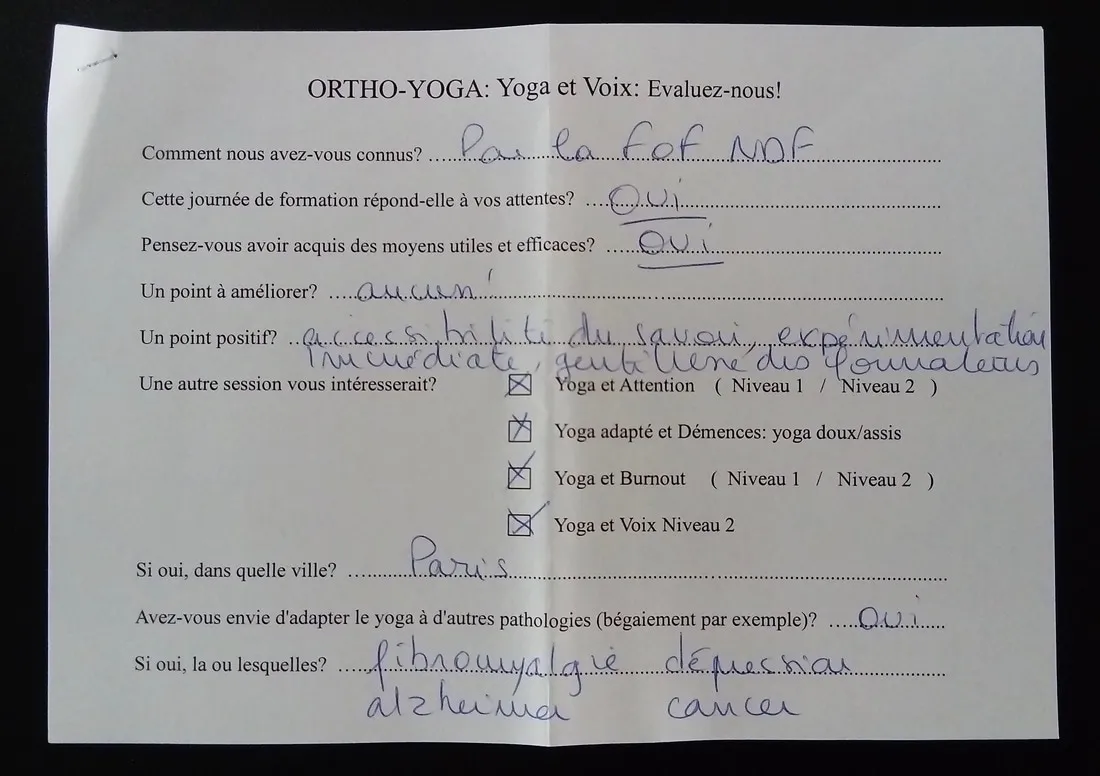 ORTHO-YOGA: Yoga et Voix: Evaluez-nous!
Comment nous avez-vous connus? Par la fof NDF
Cette journée de formation répond-elle à vos attentes? OUI
Pensez-vous avoir acquis des moyens utiles et efficaces? OUI
Un point à améliorer? aucun
Un point positif? accessibilité du savoir, expérimentation
immédiate, gentillesse des formateurs
Une autre session vous intéresserait? ☒ Yoga et Attention ( Niveau 1 / Niveau 2 )
☒ Yoga adapté et Démences: yoga doux/assis
☒ Yoga et Burnout ( Niveau 1 / Niveau 2 )
☒ Yoga et Voix Niveau 2
Si oui, dans quelle ville? Paris
Avez-vous envie d'adapter le yoga à d'autres pathologies (bégaiement par exemple)? OUI
Si oui, la ou lesquelles? fibromyalgie dépression
alzheimer cancer